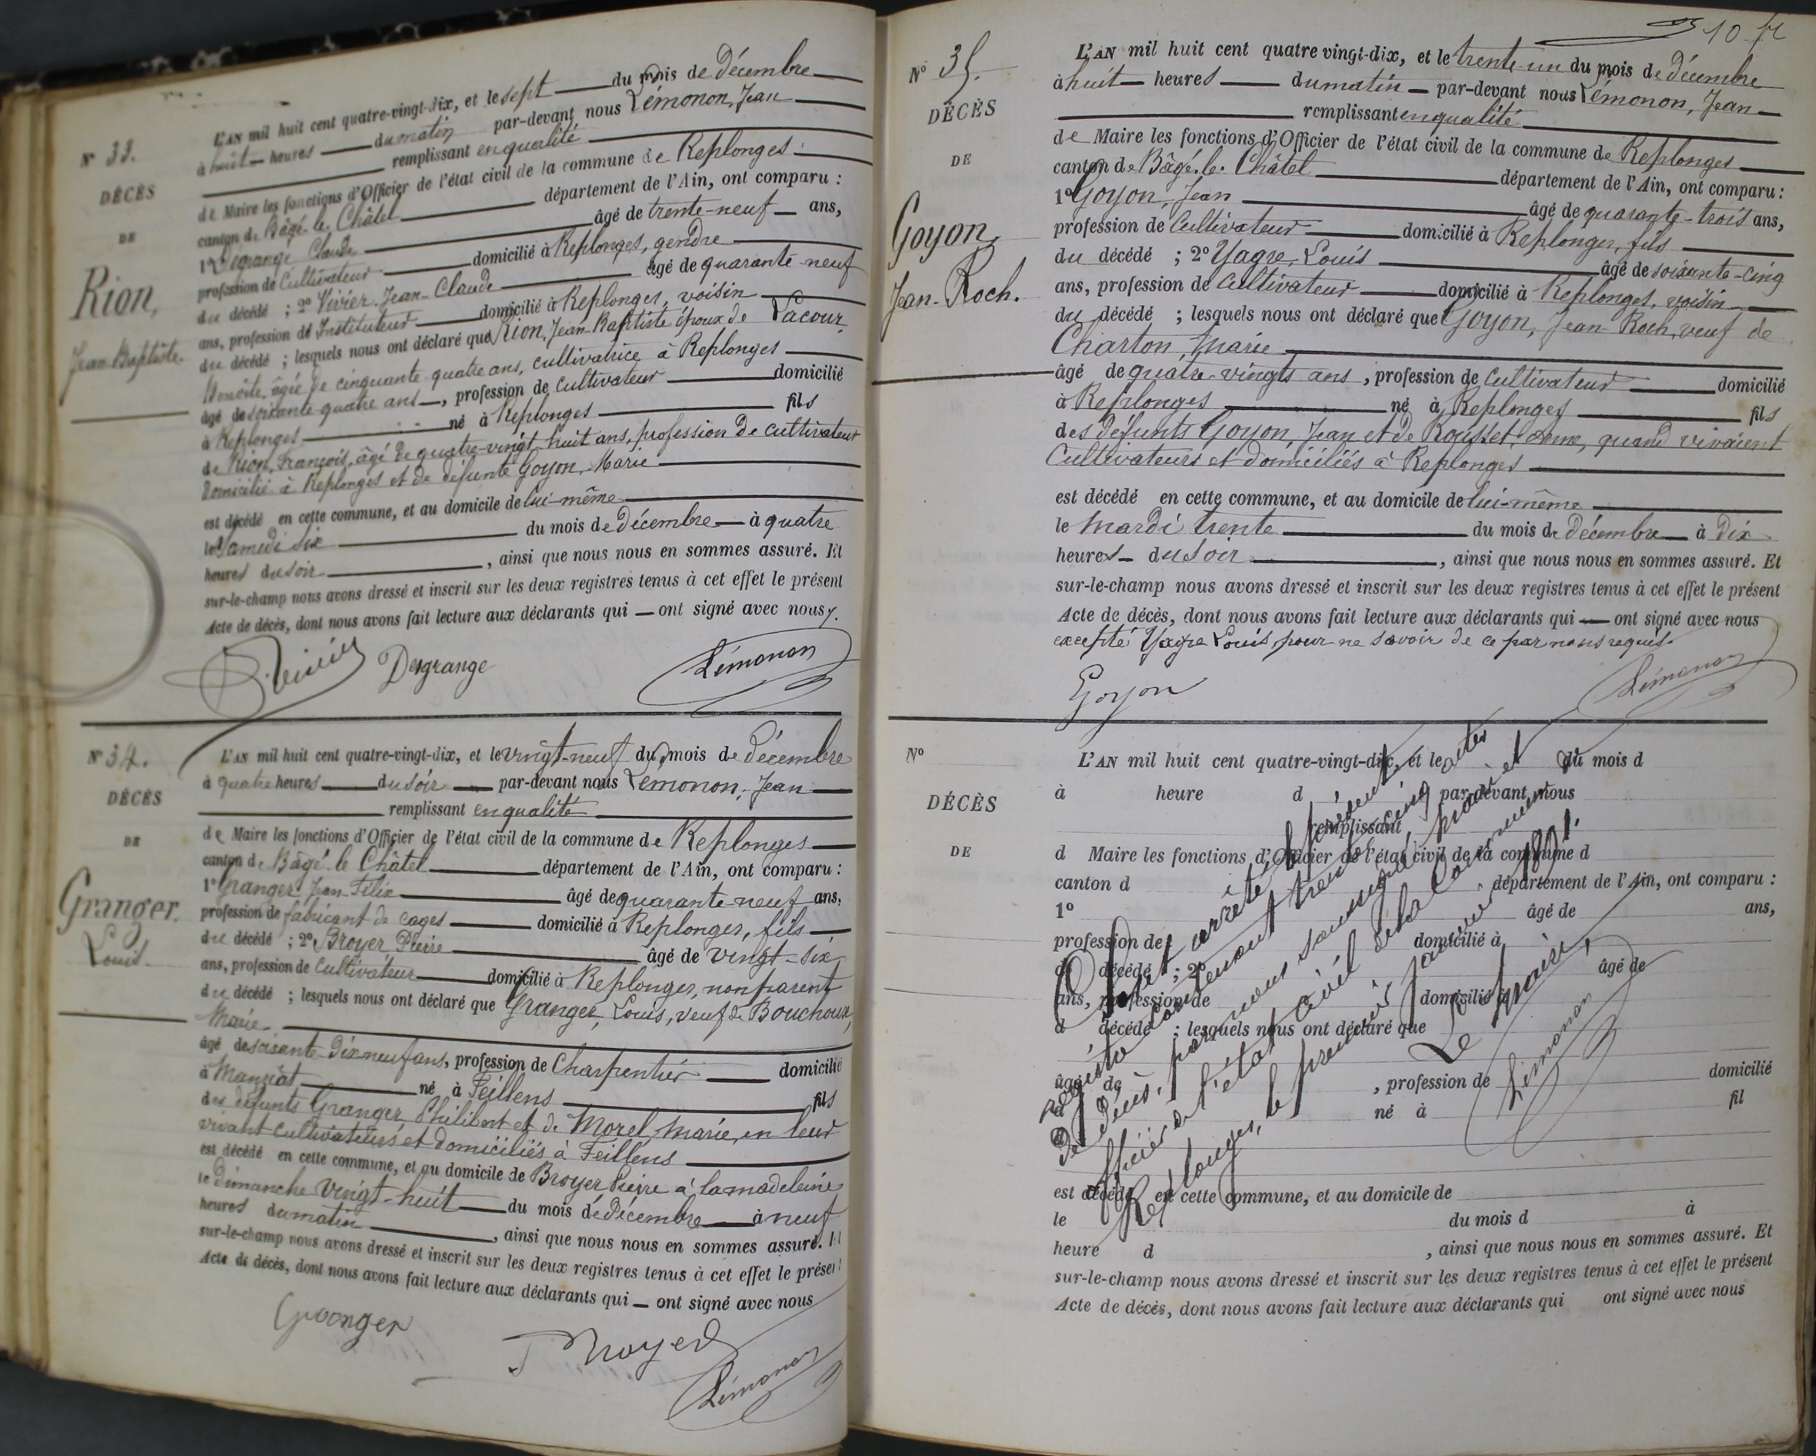 N° 33.
DÉCÈS
DE
Rion,
Jean-Baptiste.
L'AN mil huit cent quatre-vingt-dix, et le sept du mois de Décembre
à huit heures du matin par-devant nous Lémonon, Jean
remplissant en qualité
de Maire les fonctions d'Officier de l'état civil de la commune de Replonges
canton de Bâgé-le-Châtel département de l'Ain, ont comparu :
1° Degrange Claude âgé de trente-neuf ans,
profession de Cultivateur domicilié à Replonges, gendre
du décédé ; 2° Vivier Jean-Claude âgé de quarante-neuf
ans, profession de Instituteur domicilié à Replonges, voisin
du décédé ; lesquels nous ont déclaré que Rion, Jean Baptiste époux de Lacour,
âgée de cinquante quatre ans, cultivatrice à Replonges
âgé de soixante quatre ans, profession de cultivateur domicilié
à Replonges né à Replonges fils
de Rion, François, âgé de quatre-vingt huit ans, profession de cultivateur
domicilié à Replonges et de défunte Goyon, Marie
est décédé en cette commune, et au domicile de lui-même
le Samedi six du mois de décembre à quatre
heures du soir, ainsi que nous nous en sommes assuré. Et
sur-le-champ nous avons dressé et inscrit sur les deux registres tenus à cet effet le présent
Acte de décès, dont nous avons fait lecture aux déclarants qui ont signé avec nous.
Vivier Degrange Lémonon
N° 34.
DÉCÈS
DE
Granger,
Louis.
L'AN mil huit cent quatre-vingt-dix, et le vingt-neuf du mois de Décembre
à quatre heures du soir par-devant nous Lémonon, Jean
remplissant en qualité
de Maire les fonctions d'Officier de l'état civil de la commune de Replonges
canton de Bâgé-le-Châtel département de l'Ain, ont comparu :
1° Granger Jean-Félix âgé de quarante-neuf ans,
profession de fabricant de cages domicilié à Replonges, fils
du décédé ; 2° Broyer Pierre âgé de vingt-six
ans, profession de Cultivateur domicilié à Replonges, non parent
du décédé ; lesquels nous ont déclaré que Granger, Louis, veuf de Bouchoux,
Marie
âgé de soixante-dix neuf ans, profession de Charpentier domicilié
à Manziat né à Feillens fils
des défunts Granger Philibert et de Morel, Marie, en leur
vivant cultivateurs et domiciliés à Feillens
est décédé en cette commune, et au domicile de Broyer Pierre à la madeleine
le dimanche vingt-huit du mois de décembre à neuf
heures du matin, ainsi que nous nous en sommes assuré. Et
sur-le-champ nous avons dressé et inscrit sur les deux registres tenus à cet effet le présent
Acte de décès, dont nous avons fait lecture aux déclarants qui ont signé avec nous
Granger
Broyer
Lémonon
10
N° 35.
DÉCÈS
DE
Goyon,
Jean-Roch.
L'AN mil huit cent quatre vingt-dix, et le trente-un du mois de décembre
à huit heures du matin par-devant nous Lémonon, Jean
remplissant en qualité
de Maire les fonctions d'Officier de l'état civil de la commune de Replonges
canton de Bâgé-le-Châtel département de l'Ain, ont comparu :
1° Goyon, Jean âgé de quarante-trois ans,
profession de Cultivateur domicilié à Replonges, fils
du décédé ; 2° Yagre, Louis âgé de soixante-cinq
ans, profession de Cultivateur domicilié à Replonges, voisin
du décédé ; lesquels nous ont déclaré que Goyon, Jean-Roch, veuf de
Charton, Marie
âgé de quatre-vingts ans, profession de cultivateur domicilié
à Replonges né à Replonges fils
des défunts Goyon, Jean et de Rousset, quand vivaient
Cultivateurs et domiciliés à Replonges
est décédé en cette commune, et au domicile de lui-même
le Mardi trente du mois de décembre à Dix
heures du soir, ainsi que nous nous en sommes assuré. Et
sur-le-champ nous avons dressé et inscrit sur les deux registres tenus à cet effet le présent
Acte de décès, dont nous avons fait lecture aux déclarants qui ont signé avec nous
excepté Yagre Louis, pour ne savoir de ce par nous requis.
Goyon
Lémonon
N°
DÉCÈS
DE
L'AN mil huit cent quatre-vingt-dix, et le du mois d
à heure d par-devant nous
remplissant
d Maire les fonctions d'Officier de l'état civil de la commune d
canton d département de l'Ain, ont comparu :
1° âgé de ans,
profession de domicilié à
d décédé ; 2° âgé de
ans, profession de domicilié à
d décédé ; lesquels nous ont déclaré que
âgé de, profession de domicilié
à né à fil
est décédé en cette commune, et au domicile de
le du mois d à
heure d, ainsi que nous nous en sommes assuré. Et
sur-le-champ nous avons dressé et inscrit sur les deux registres tenus à cet effet le présent
Acte de décès, dont nous avons fait lecture aux déclarants qui ont signé avec nous
arrêté le présent
registre contenant trente cinq actes
de décès, par nous soussigné, maire et
officier de l'état civil de la commune
Replonges, le premier janvier 1891.
Le Maire,
Lémonon